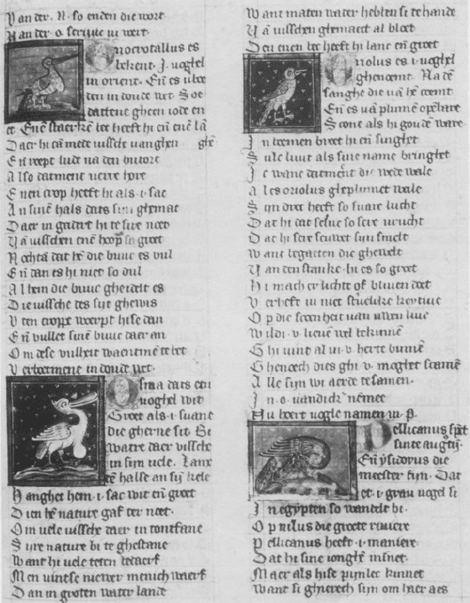 Van der . N . so enden die wort
Nander . o . seriute u wert .
Onocrotallus es
bekent . I . voghel
in orient . En es vloe
den in doude wet . So et
dattene gheen iode en
et . Ene staerke bec heeft hi en ene la
Daer hi mede vissche vanghen
En roept lude na den butore
Also datment verre hore
Enen crop heeft hi als . i . sac
An sine hals dats sijn ghemac
Daer in gadert hi te sire neet
Va visschen ene hoop so groet
Nochta dat he die buuc es vul
En dan es hi niet so dul
Al hem die buuc gheidelt es
Die vissche des sijt ghewis
Vten croppe weerpt hise dan
En vullet sine buuc daer an
Om dese vulheit waentme te bet
Verboemene in doude wet .
Osina dats een
voghel wit
Groet als . i . suane
die gherne sit . Bi
watre daer vissche
in sijn vele . Lanc
te halse an sij kele
Hanghet hem . i . sac wit en groet
Dien he nature gaf ter noet .
Om vele vissche daer in tontfane
Sijre nature bi te ghestane
Want hi vele eten bedaerf
Men vintse niewer menich waerf
Dan in groten water lande
Want maten water hebben si te hande
Va visschen ghemaect al bloet
Den enen bec heeft hi lanc en groet
Oriolus es . i . voghel
ghenoemt . Na de
sanghe die va he coemt
En es va plumen openbare
Scone als hi goude ware .
In bomen broet hi en singhet
Sule luut als sine name bringhet
Ic wane datment die wede wale
Ales oriolus gheplumet wale
Sijn dreet heeft so suare lucht
Dat hi dat selue so sere vrucht
Dat hi sere scuwet sijn smelt
Want legaecten die ghewelt
Van den stanke . hi es so groet
Hi mach er lichte of bliuen doet
Verheft iu niet sturlike keytiue
Op die scoenheit van uwen liue
Wildi . v . lieue wel bekinnen
Ghi vint al in . v . herte binnen
Ghenoech dies ghi . v . moghet scamen
Alle sijn wi aerde te samen .
In . o . vandick nemee
Nu hoert vogle namen in . p .
Pellicanus sprect
sinte augustijn .
En ysidorus die
meester fijn . Dat
et . i . grau vogel si
In egypten so wandelt hi .
Op nilus die groete riuiere
Pellicanus heeft . i . maniere
Dat hi sine ionghe minet .
Maer als hise pijnlec kinnet
Want si ghierech sijn om haer aes